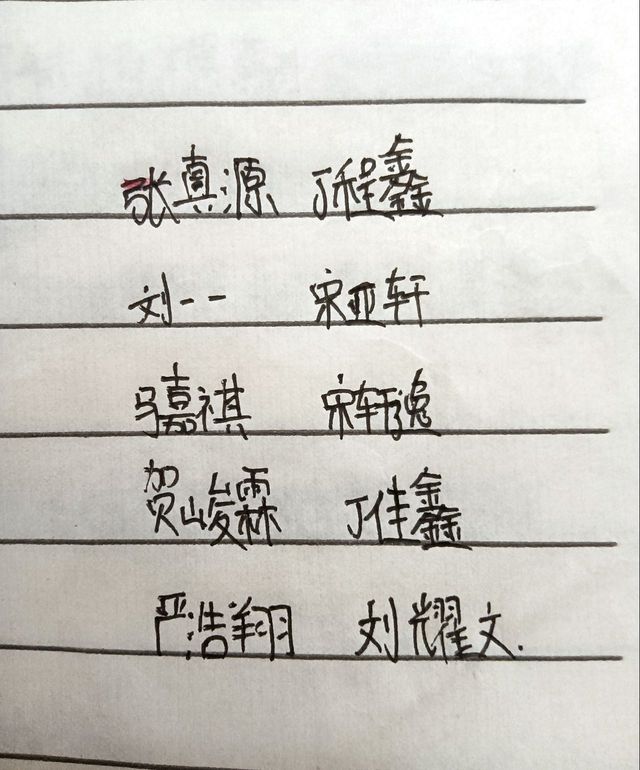 张真源 丁程鑫
刘一一 宋亚轩
马嘉祺 宋轩逸
贺峻霖 丁佳鑫
严浩翔 刘耀文.